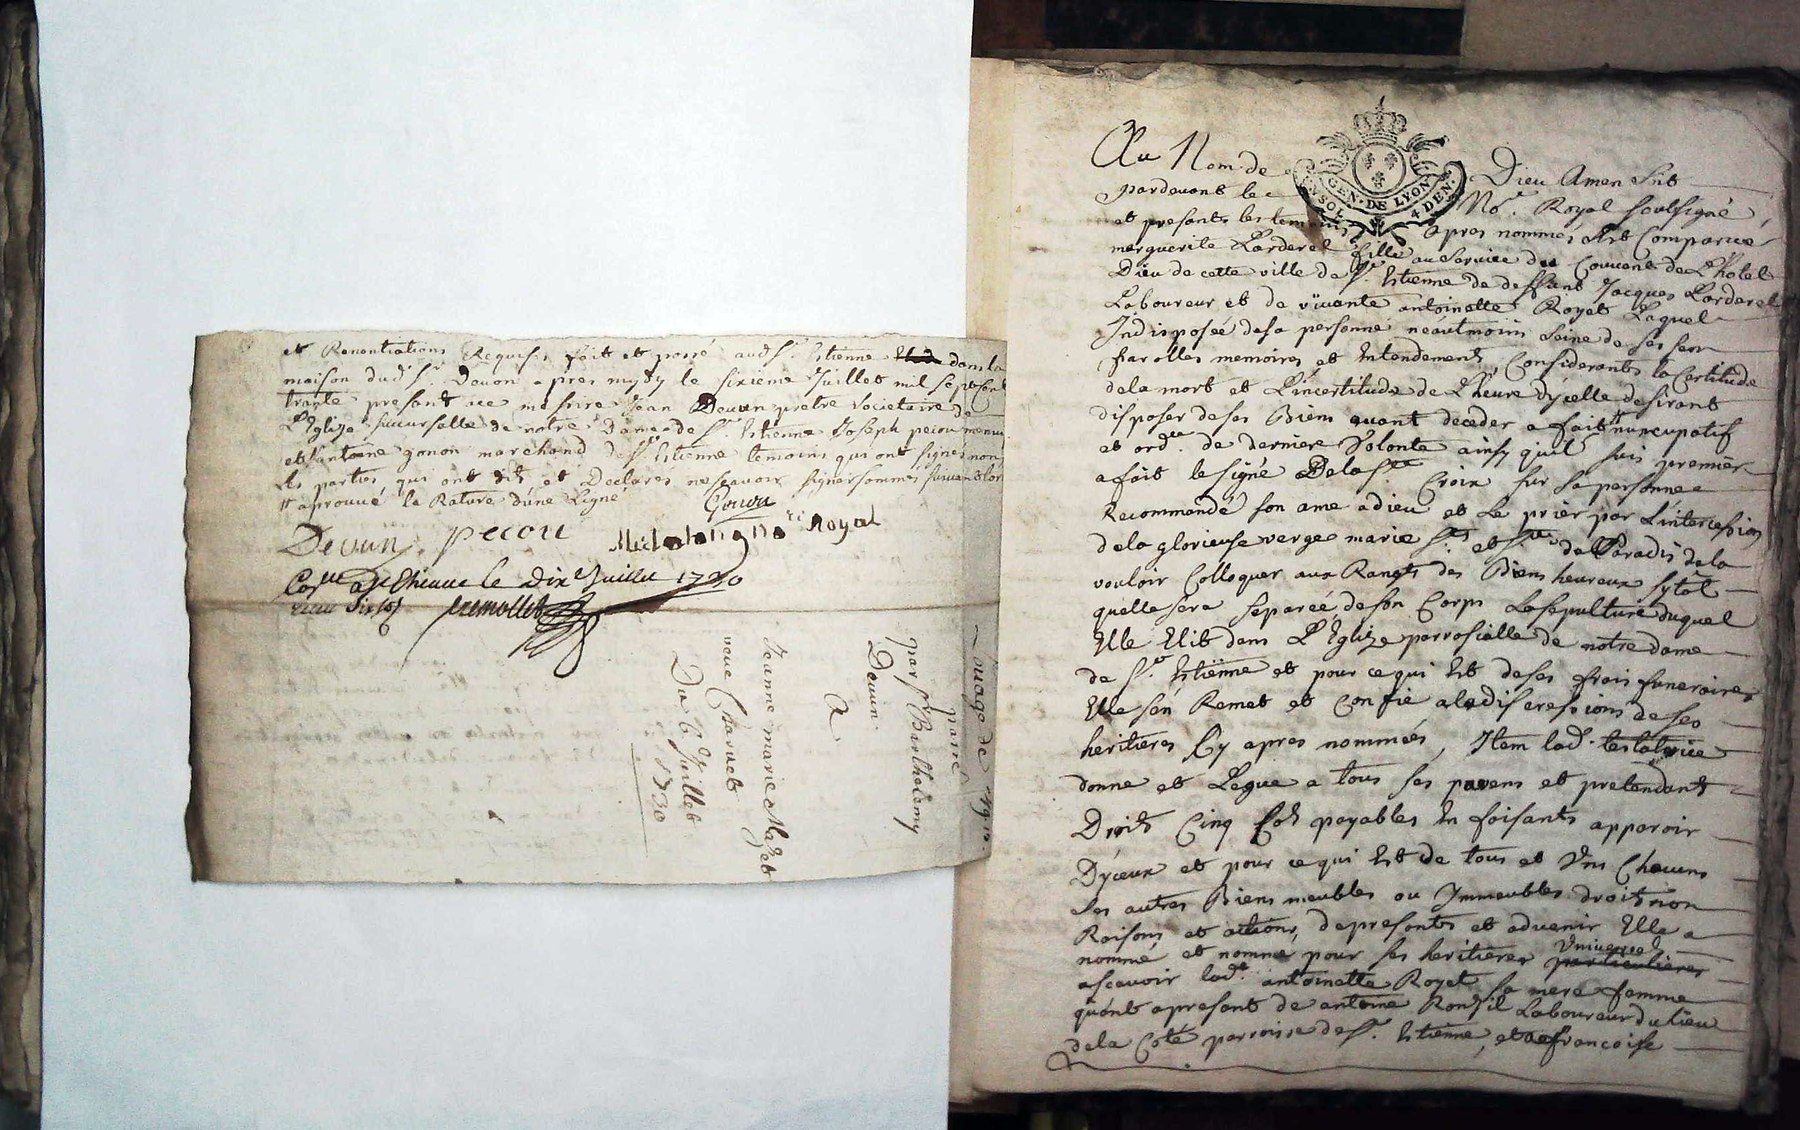 et Renontiations Requises fait et passé aud St. Estienne dans la
maison dud Sr. Devun apres mydy le sixieme Juillet mil sept cent
trante presant ice messire Jean Devun pretre societaire de
L'Eglize succursalle de notre Dame de St. Estienne Joseph pecou
et antoine gonon marchand de St. Estienne temoins qui ont signes non
les parties qui ont dit et Declares ne scavoir signer sommes suivant
# aprouvé la Rature d'une Ligne
Gonon
Devun pecou
Royal
a St Etienne le dix Juillet 1730
Louage de
passé
par Sr Barthelemy
Devun
A
Jeanne marie
veuve Charuet
Du 6e Juillet
1730
GEN. DE LYON
SOL. 4 DEN.
Au Nom de Dieu Amen soit
pardevant le No.re Royal soubsigné
et presants les temoins apres nommés est comparüe
marguerite Larderet fille au service du Couvent de L'hotel
Dieu de cette ville de St. Estienne de deffunt Jacques Larderet
Laboureur et de vivante antoinette Royet Laquel
Indisposée de sa personne neautmoins seine de ses sens
parolles memoires et Entendements Considerants la Certitude
de la mort et L'incertitude de L'heure d'ycelle desirant
disposer de ses Biens avant deceder a fait # nuncupatif
et ord.re de derniere Volonte ainsy quil suis premier
a fait le signe De la Ste Croix sur sa personne
Recommandé son ame a dieu et Le prier par L'intercession
de la glorieuse verge marie Sts et Stes de Paradis de la
vouloir Colloquer aux Rangs des Biens heureux sytot
quelle sera separée de son Corps La sepulture duquel
Elle Elit dans L'Eglize parrosialle de notre dame
de St. Estienne et pour ce qui Est de ses frais funeraires
Elle sen Remet et Confie a la discressions de ses
heritieres Cy apres nommées, Item lad. testatrice
donne et Legue a tous ses parens et pretendants
Droits Cinq sols payables En faisants apparoir
D'yceux et pour ce qui Est de tous et Uns Chacuns
ses autres Biens meubles ou Immeubles droits non
Raisons et actions, de presents et advenir Elle a
nommé et nomme pour ses heritieres particulieres Universel
ascavoir lad.e antoinette Royet sa mere femme
quant apresant de antoine Laboureur du lieu
de la Coté parroisse de St. Estienne, et francoise